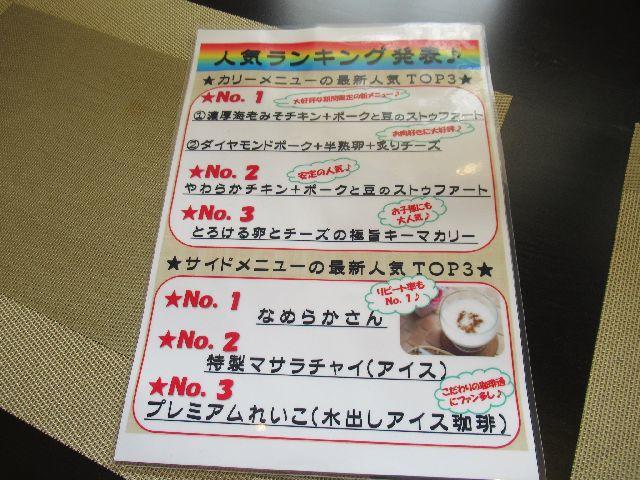 人気ランキング発表♪
★カリーメニューの最新人気TOP3★
★No. 1
大好評な期間限定の新メニュー♪
①濃厚海老みそチキン+ポークと豆のストゥファート
お肉好きに大好評♪
②ダイヤモンドポーク+半熟卵+炙りチーズ
★No. 2
安定の人気♪
やわらかチキン+ポークと豆のストゥファート
★No. 3
お子様にも
大人気♪
とろける卵とチーズの極旨キーマカリー
★サイドメニューの最新人気TOP3★
★No. 1
リピート率も
No. 1♪
なめらかさん
★No. 2
特製マサラチャイ(アイス)
★No. 3
こだわりの珈琲通
にファン多し♪
プレミアムれいこ(水出しアイス珈琲)